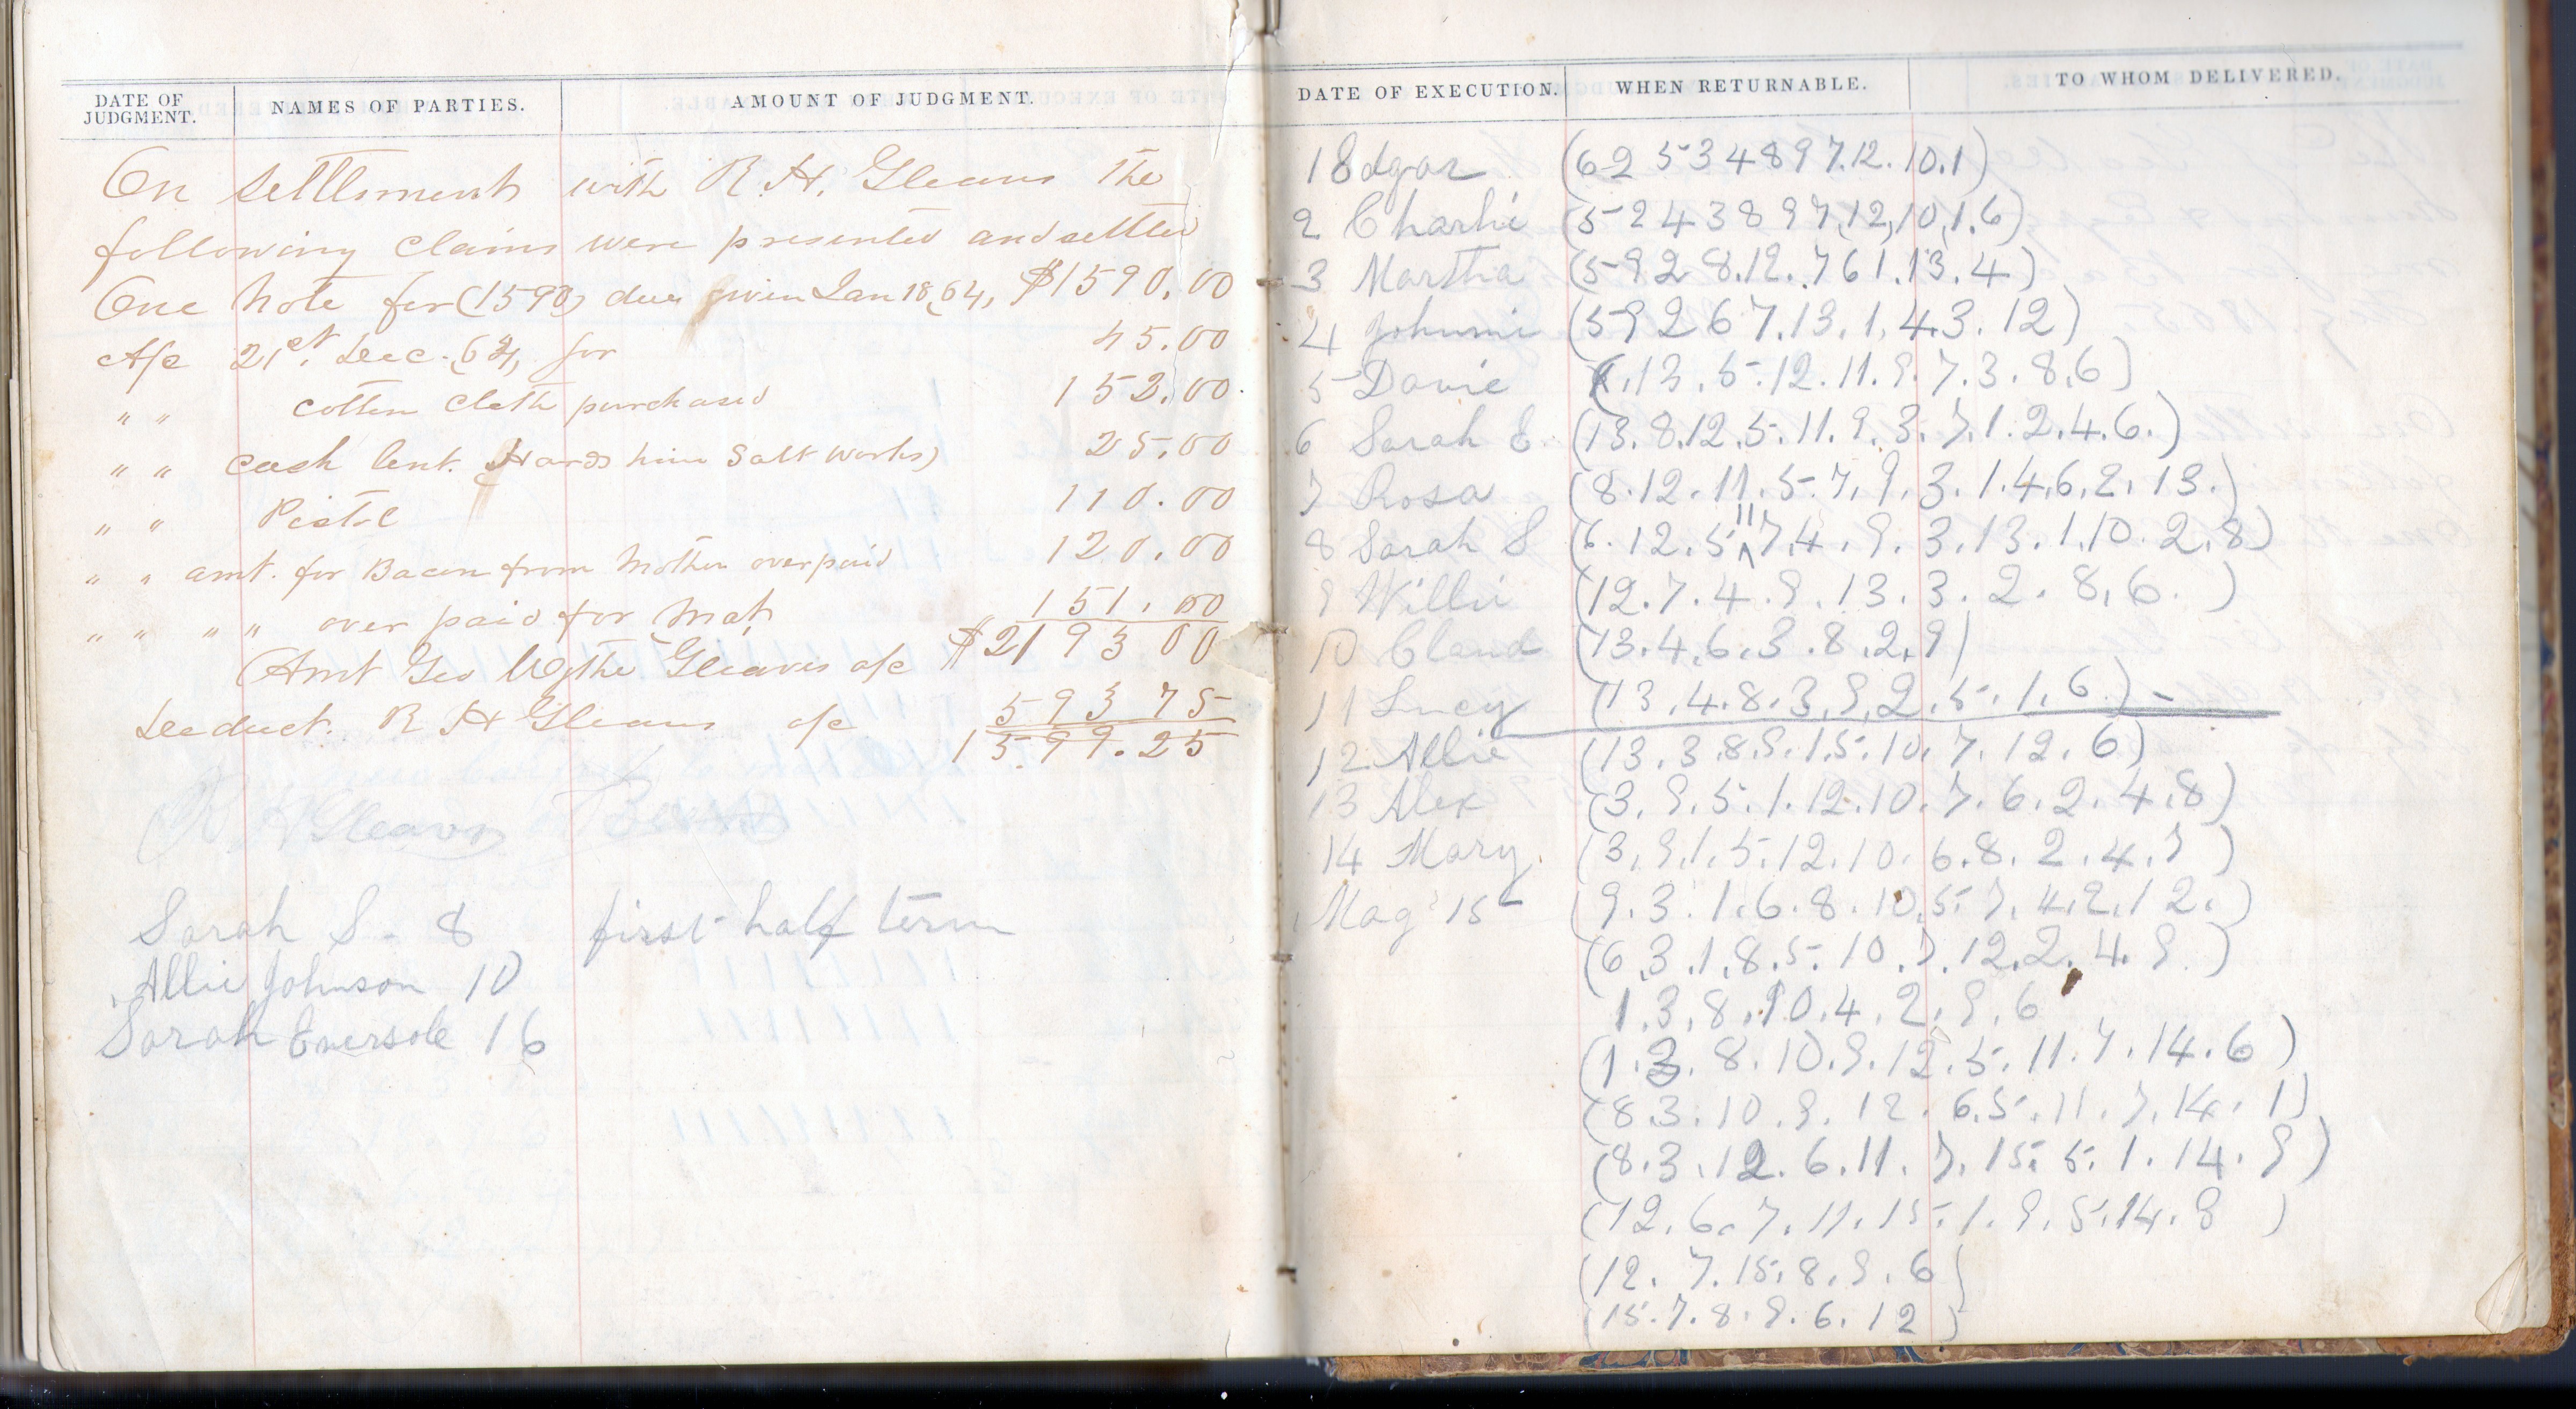 DATE OF JUDGMENT.
NAMES OF PARTIES.
AMOUNT OF JUDGMENT.
On settlement with R. H. Gleaves the
following claims were presented and settled
One Note for (1590) due given Jan 18, 64, $1590.00
A/c 21st. Dec. 64, for 45.00
" " cotten cloth purchased 152.00
" " cash lent. (Hards hine Salt Works) 25.00
" " Pistol 110.00
" " amt. for Bacon from Mother over paid 120.00
" " " " over paid for 151.00
Amt Geo Wythe Gleaves a/c $2193 00
Deduct. R H Gleaves a/c 593 75
1599.25
R H Gleaves
Sarah S. 8 first half term
Allie Johnson 10
Sarah Eversole 16
DATE OF EXECUTION.
WHEN RETURNABLE.
TO WHOM DELIVERED.
1 Edgar (6 2 5 3 4 8 9 7.12.10.1)
2 Charlie (5 2 4 3 8 9 7,12,10,1.6)
3 Martha (5 9 2 8.12. .7 6 1.13.4)
4 Johnnie (5 9 2 6 7.13.1.4.3.12)
5 Davie (1.13.5.12.11.9.7.3.8.6)
6 Sarah E. (13.8.12.5.11.9.3.7.1.2.4.6.)
7 Rosa (8.12.11.5.7.9.3.1.4.6.2.13.)
8 Sarah S (6.12.5.11 7.4.9.3.13.1.10.2.8)
9 Willie (12.7.4.9.13.3.2.8.6.)
10 Claud (13.4.6.3.8.2.9)
11 Lucy (13.4.8.3.9.2.5.1.6.)
12 Allie (13.3.8.9.1.5.10.7.12.6)
13 Alex (3.9.5.1.12.10.7.6.2.4.8)
14 Mary. (3.9.1.5.12.10.6.8.2.4.7)
Mag 15 (9.3.1.6.8.10.5.7.4.2.12.)
(6.3.1.8.5.10.7.12.2.4.9.)
1.3.8.10.4.2.9.6
(1.3.8.10.9.12.5.11.7.14.6)
(8.3.10.9.12.6.5.11.7.14.1)
(8.3.12.6.11.7.15.5.1.14.9)
(12.6.7.11.15.1.9.5.14.8)
(12.7.15.8.9.6)
(15.7.8.9.6.12)